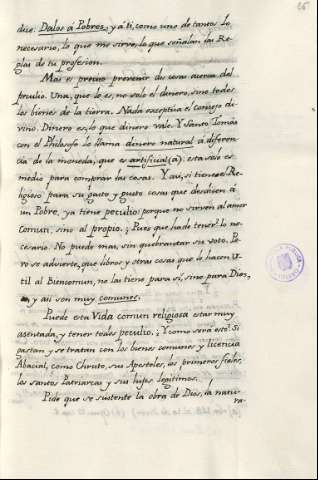 dice: Dalos á Pobres, y á ti, como uno de tantos lo
necesario, lo que me sirve, lo que señalan las Re-
glas de tu profesion.
Mas es preciso prevenir dos cosas acerca del
peculio. Una, que lo es, no solo el dinero, sino todos
los bienes de la tierra. Nada exceptúa el consejo di-
vino. Dinero es, lo que dinero vale. Y Santo Tomás
con el Philosofo lo llama dinero natural á diferen-
cia de la moneda, que es artificial (a): esta solo es
medio para comprar las cosas. Y asi, si tiene el Re-
ligioso para su gasto y gusto cosas que desdicen á
un Pobre, ya tiene peculio: porque no sirven al amor
comun, sino al propio. ¿Pues que ha de tener? lo ne-
cesario. No puede mas, sin quebrantar su voto. Pe-
ro se advierte, que libros y otras cosas que lo hacen u-
til al Bien comun, no las tiene para sí, sino para Dios,
y asi son muy comunes.
Puede esta Vida comun religiosa estar muy
asentada, y tener todos peculio. ¿Y como será esto? Si
gastan y se tratan con los bienes comunes y licencia
Abacial, como Christo, sus Apostoles, los primeros fieles,
los santos Patriarcas y sus hijos legitimos.
Pide que se sustente la obra de Dios, la natu-
ra-